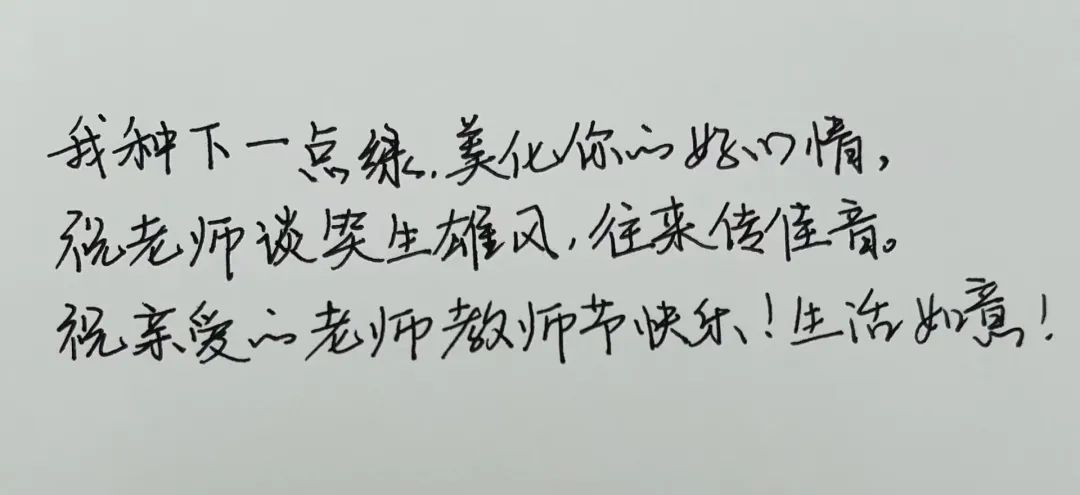 我种下一点绿,美化你的好心情,
祝老师谈笑生雄风,往来传佳音。
祝亲爱的老师教师节快乐!生活如意!